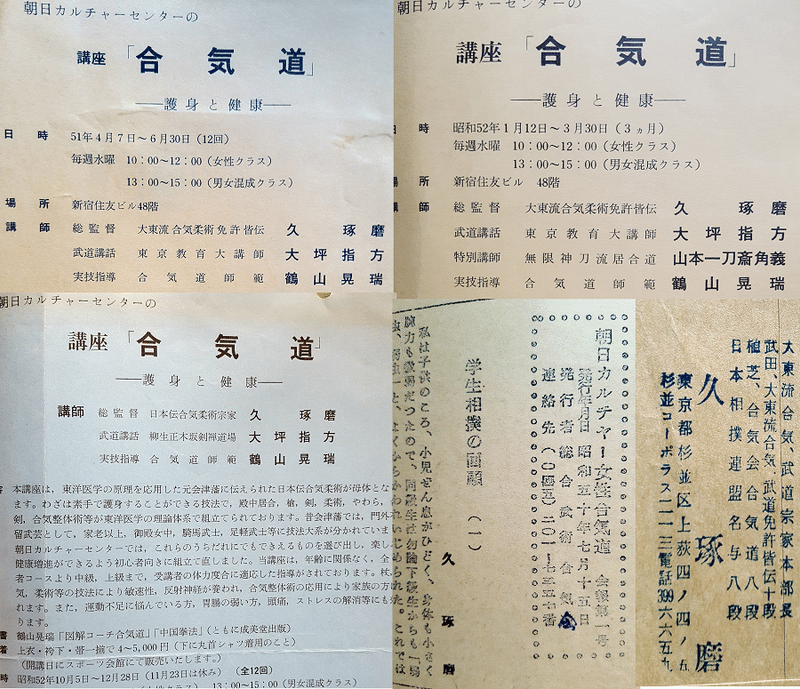 朝日カルチャーセンターの
講座「合気道」
──護身と健康──
日時 51年4月7日〜6月30日（12回）
毎週水曜 10：00〜12：00（女性クラス）
13：00〜15：00（男女混成クラス）
場所 新宿住友ビル48階
講師 総監督 大東流合気柔術免許皆伝 久琢磨
武道講話 東京教育大講師 大坪指方
実技指導 合気道師範 鶴山晃瑞
朝日カルチャーセンターの
講座「合気道」
──護身と健康──
時 昭和52年1月12日〜3月30日（3ヵ月）
毎週水曜 10：00〜12：00（女性クラス）
13：00〜15：00（男女混成クラス）
所 新宿住友ビル 48階
師 総監督 大東流合気柔術免許皆伝 久琢磨
武道講話 東京教育大講師 大坪指方
特別講師 無限神刀流居合道 山本一刀斎角義
実技指導 合気道師範 鶴山晃瑞
朝日カルチャーセンターの
講座「合気道」
──護身と健康──
講師 総監督 日本伝合気柔術宗家 久琢磨
武道講話 柳生正木坂剣禅道場 大坪指方
実技指導 合気道師範 鶴山晃瑞
本講座は、東洋医学の原理を応用した元会津藩に伝えられた日本伝合気柔術が母体とな
ます。わざは素手で護身することができる技法で、殿中居合、槍、剣、柔術、やわら、
剣、合気整体術等が東洋医学の理論体系で組立てられております。昔会津藩では、門外
留武芸として、家老以上、御殿女中、騎馬武士、足軽武士等に技法大系が分かれていま
朝日カルチャーセンターでは、これらのうちだれにでもできるものを選び出し、楽し
健康増進ができるよう初心者向きに組立て直しました。当講座は、年齢に関係なく、全
者コースより中級、上級まで、受講者の体力度合に適応した指導がおこなわれます。杖
気、柔術等の技法により敏速性、反射神経が養われ、合気整体術の応用により家族の方
れます。また、運動不足に悩んでいる方、胃腸の弱い方、頭痛、ストレスの解消等にも
書 鶴山晃瑞「図解コーチ合気道」「中国拳法」（ともに成美堂出版）
着 上衣・袴下・帯一揃で4〜5,000円（下に丸首シャツ着用のこと）
（開講日にスポーツ会館にて販売いたします。）
時 昭和52年10月5日〜12月28日（11月23日は休み）（全12回）
13：00〜15：00（男女混成クラス）
朝日カルチャー女性合気道 会報第一号
発行年月日 昭和五十年七月十五日
発行者 総合武術合気会
連絡先（〇四五）二〇一ー七三五七番
学生相撲の回顧（一）
久琢磨
私は子供のころ、小児ぜん息がひどく、身体も小さく
腕力も微弱だつたので、同級生は勿論下級生からも「弱
大東流合気、武道宗家本部長
武田、大東流合気、武道免許皆伝十段
植芝、合気会合気道八段
日本相撲連盟名与八段
久琢磨
東京都杉並区上荻四ノ四ノ五
杉並コーポラス一一一三電話399六六五九